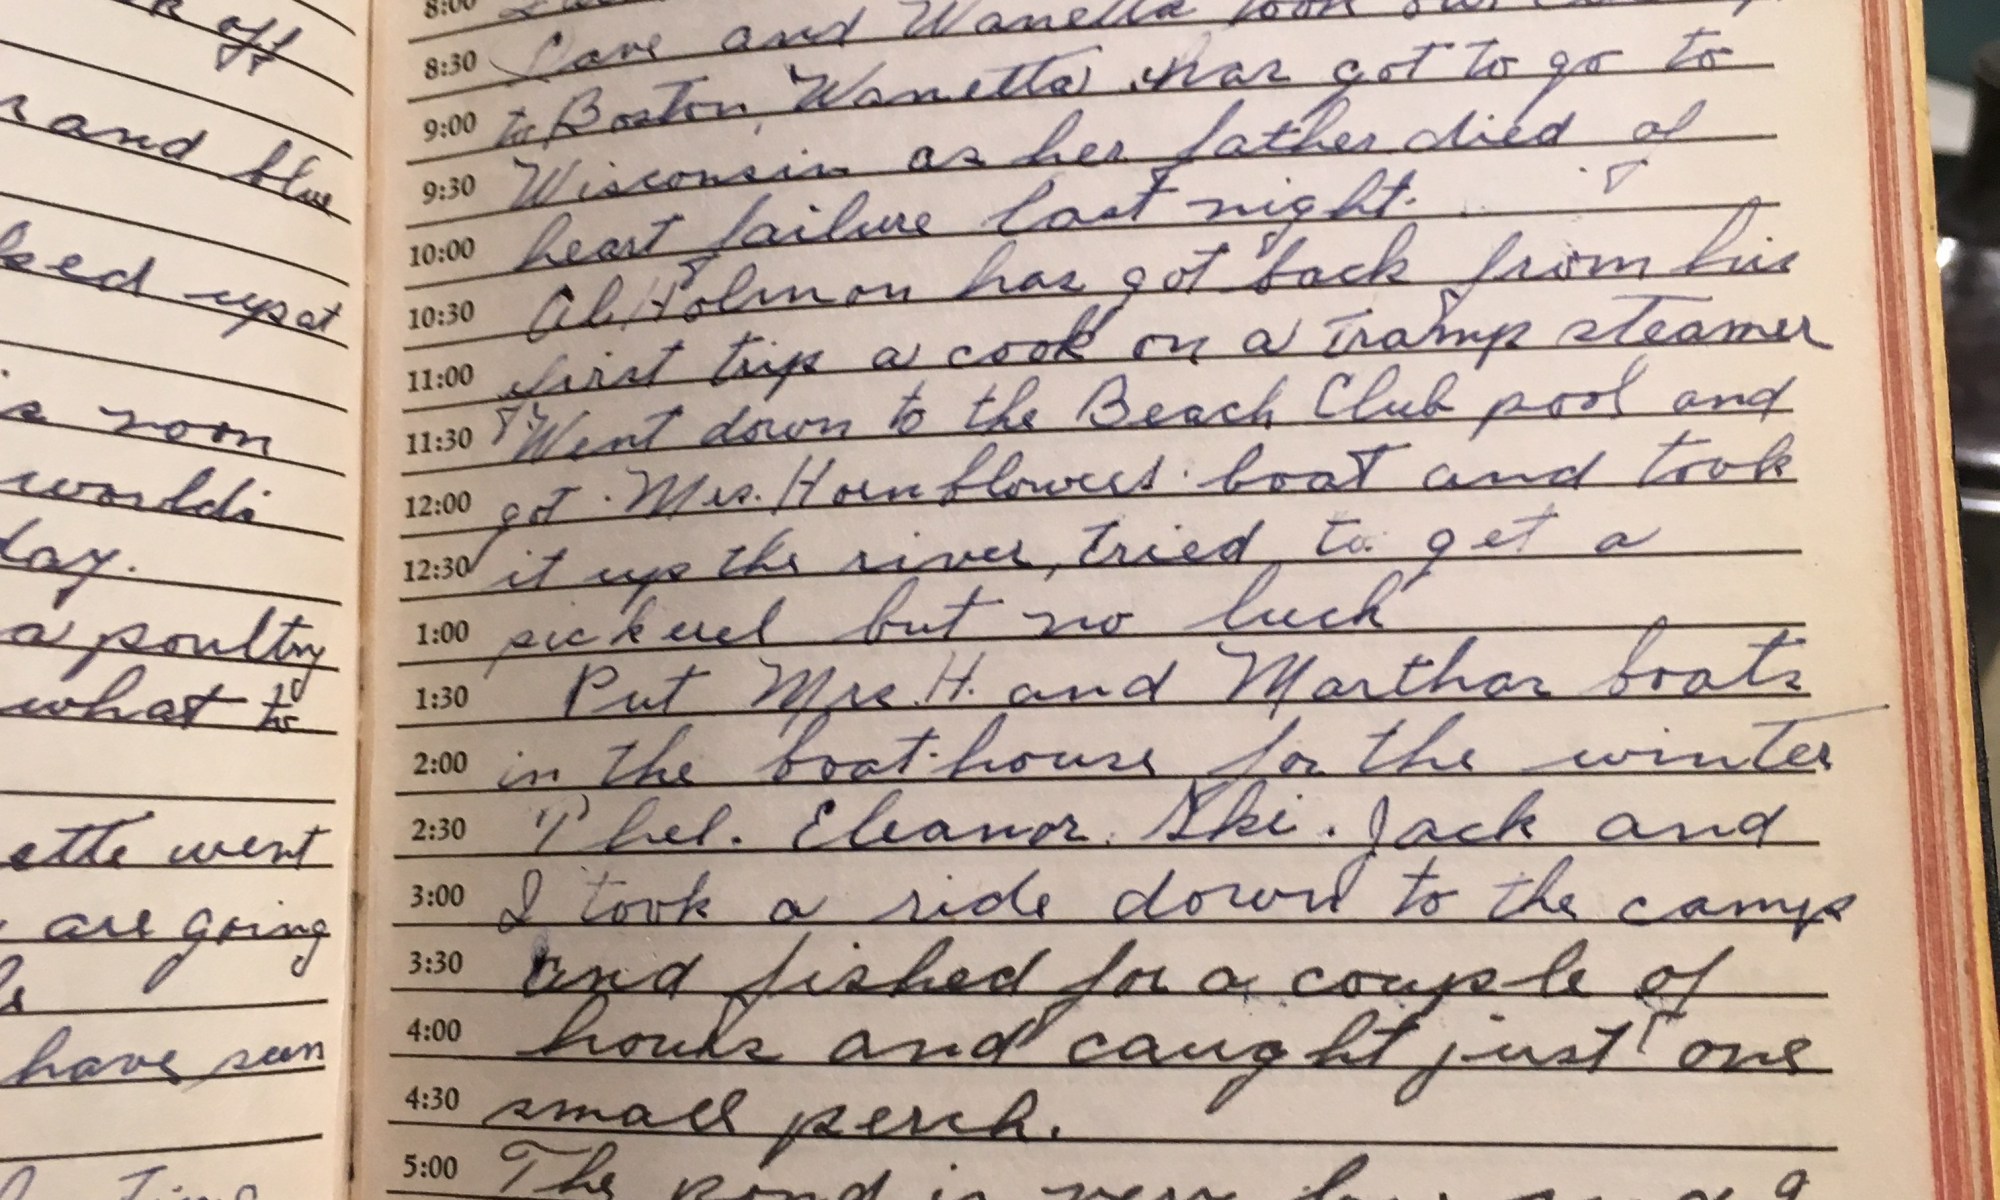 off
and blue
ked up at
noon
world's
day.
a poultry
what to
ette went
are going
have seen
8:00
8:30 Dave and Wanetta took our
9:00 to Boston, Wanetta has got to go to
9:30 Wisconsin as her father died of
10:00 heart failure last night.
10:30 Al Holman has got back from his
11:00 first trip a cook on a tramp steamer
11:30 Went down to the Beach Club pool and
12:00 got Mrs. Hornblowers boat and took
12:30 it up the river, tried to get a
1:00 pickerel but no luck
1:30 Put Mrs. H. and Marthas boats
2:00 in the boat-house for the winter
2:30 Phel. Eleanor. Ski. Jack and
3:00 I took a ride down to the camp
3:30 and fished for a couple of
4:00 hours and caught just one
4:30 small perch.
5:00 The pond is very low and